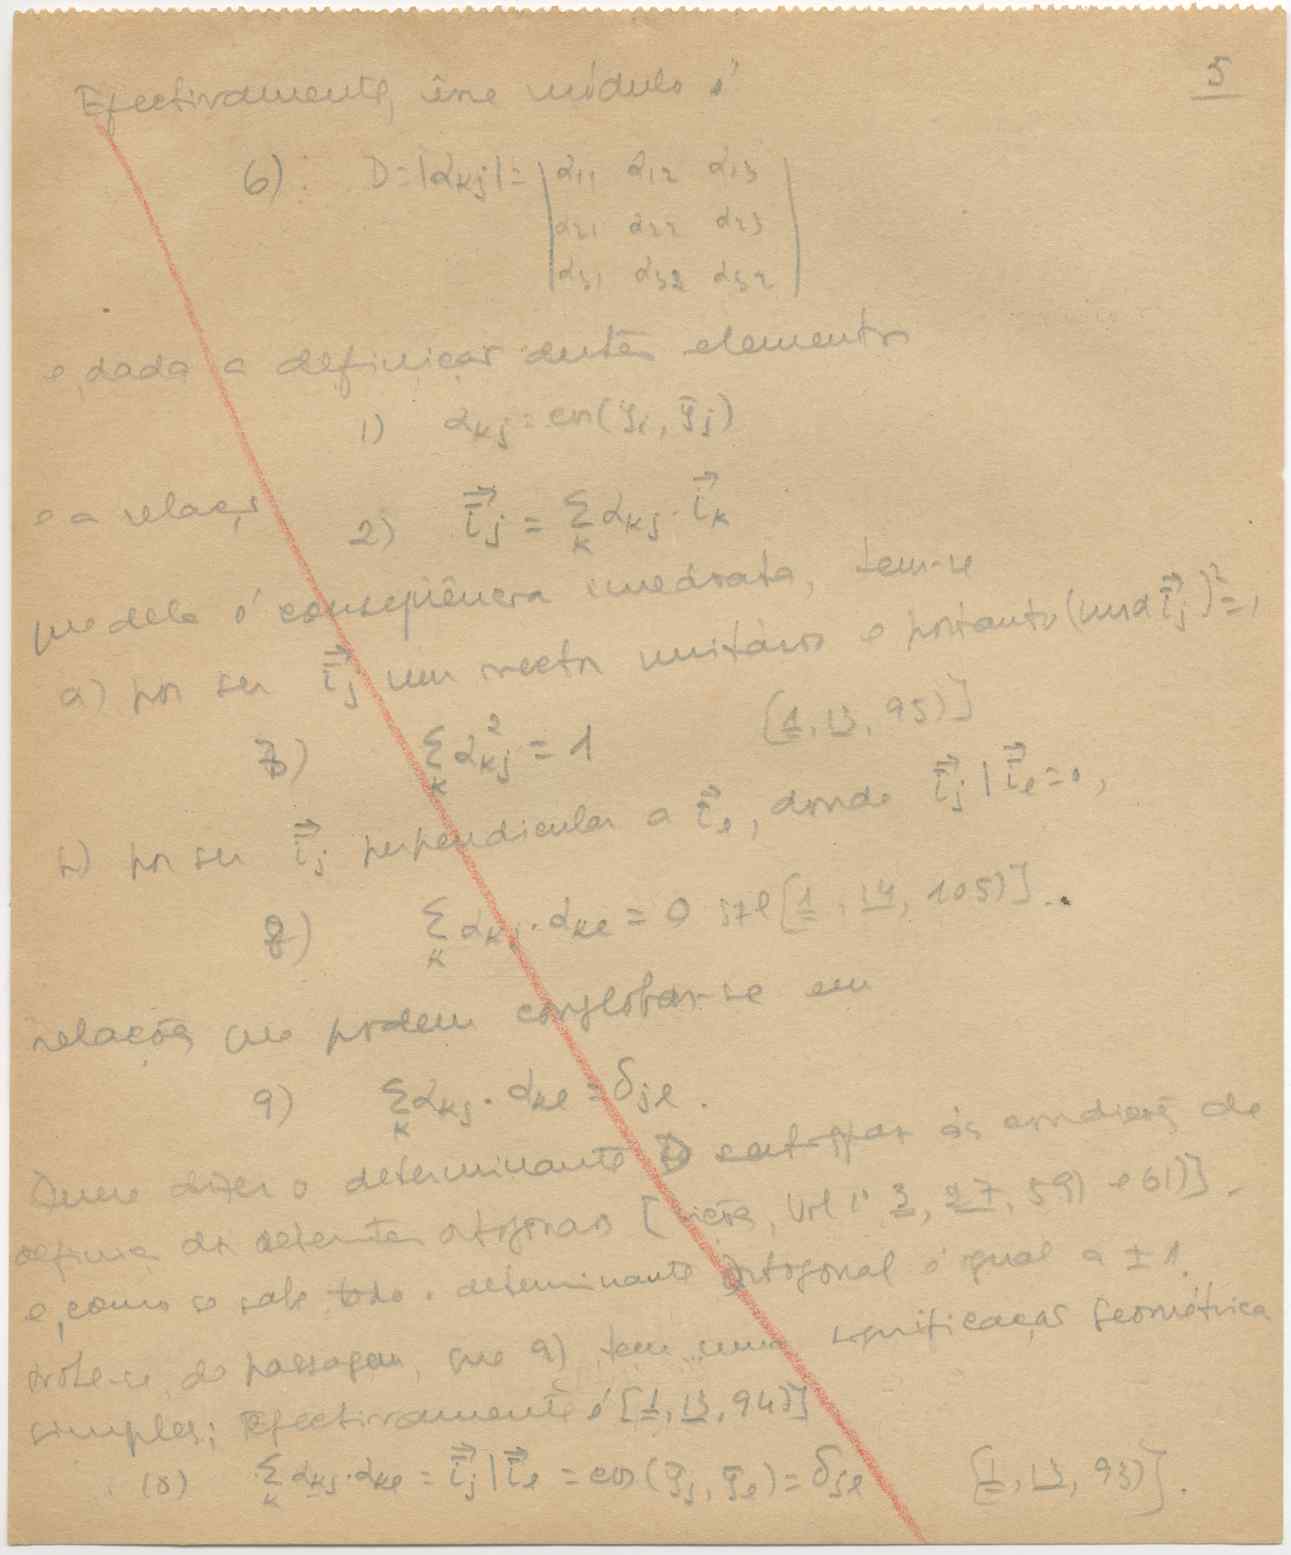 5
Efectivamente, êsse módulo é
6) : D = |αkj| = | α11 α12 α13
α21 α22 α23
α31 α32 α32 |
e, dada a definição dêstes elementos
1) αkj = cos(yi, ȳj)
e a relação
2) i̿⃗j = Σk αkj · i⃗k
que dela é conseqüência imediata, tem-se
a) por ser i̿⃗j um vector unitário e portanto (mod i̿⃗j)² = 1
7) Σk α²kj = 1 [1, 13, 95)]
b) por ser i̿⃗j perpendicular a i̿⃗l, donde i̿⃗j | i̿⃗l = 0,
8) Σk αkj · αkl = 0 j≠l [1, 14, 105)].
relações que podem conglobar-se em
9) Σk αkj · αkl = δjl.
Quere dizer o determinante D satisfaz às condições de
determinantes ortogonais [Lições, Vol 1º 3, 27, 59) e 61)].
e, como se sabe, todo o determinante ortogonal é igual a ±1.
Note-se, de passagem, que 9) tem uma significação geométrica
simples; Efectivamente é [1, 13, 94)]
(8) Σk αkj · αkl = i̿⃗j | i̿⃗l = cos(ȳj, ȳl) = δjl [1, 13, 93)].